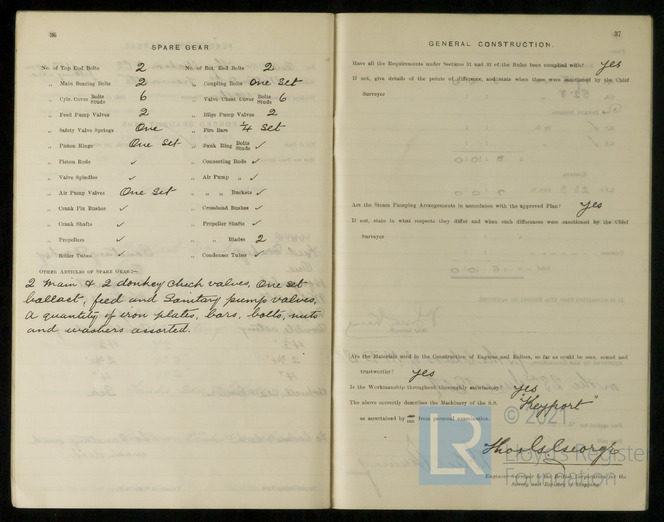 36
SPARE GEAR
No. of Top End Bolts 2 No. of Bot. End Bolts 2
„ Main Bearing Bolts 2 „ Coupling Bolts One Set
„ Cylr. Cover Bolts Studs 6 „ Valve Chest Cover Bolts Studs 6
„ Feed Pump Valves 2 „ Bilge Pump Valves 2
„ Safety Valve Springs One „ Fire Bars ¼ Set
„ Piston Rings One Set „ Junk Ring Bolts Studs ✓
„ Piston Rods ✓ „ Connecting Rods ✓
„ Valve Spindles ✓ „ Air Pump „ ✓
„ Air Pump Valves One Set „ „ „ Buckets ✓
„ Crank Pin Bushes ✓ „ Crosshead Bushes ✓
„ Crank Shafts ✓ „ Propeller Shafts ✓
„ Propellers ✓ „ „ Blades 2
„ Boiler Tubes ✓ „ Condenser Tubes ✓
OTHER ARTICLES OF SPARE GEAR:—
2 main & 2 donkey check valves, One set
ballast, feed and Sanitary pump valves.
A quantity of iron plates, bars, bolts, nuts
and washers assorted.
37
GENERAL CONSTRUCTION.
Have all the Requirements under Sections 31 and 32 of the Rules been complied with? yes
If not, give details of the points of difference, and state when these were sanctioned by the Chief
Surveyor
Are the Steam Pumping Arrangements in accordance with the approved Plan? yes
If not, state in what respects they differ and when such differences were sanctioned by the Chief
Surveyor
Are the Materials used in the Construction of Engines and Boilers, so far as could be seen, sound and
trustworthy? yes
Is the Workmanship throughout thoroughly satisfactory? yes
The above correctly describes the Machinery of the S.S. "Keyport"
as ascertained by from personal examination
© 2021
LR
Lloyd's Register
Foundation
Engineer Surveyor to the British Corporation for the
Survey and Registry of Shipping